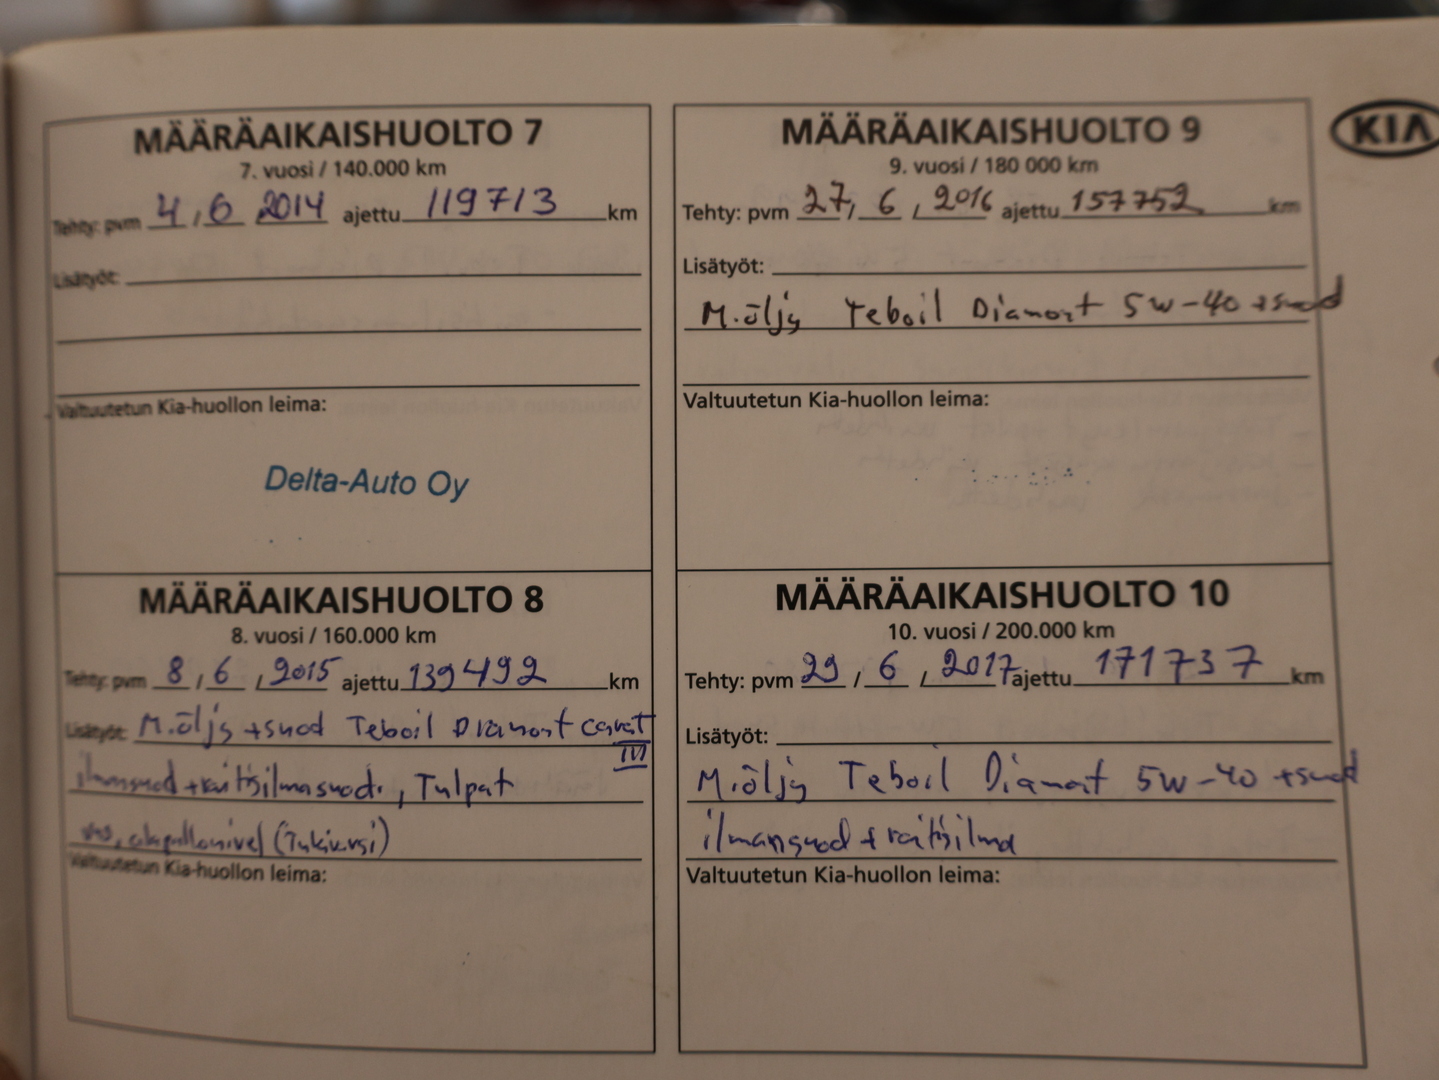 MÄÄRÄAIKAISHUOLTO 7
7. vuosi / 140.000 km
Tehty: pvm 4 / 6 2014 ajettu 119713 km
Lisätyöt:
Valtuutetun Kia-huollon leima:
Delta-Auto Oy
MÄÄRÄAIKAISHUOLTO 8
8. vuosi / 160.000 km
Tehty: pvm 8 / 6 / 2015 ajettu 139492 km
Lisätyöt: M.öljy +suod Teboil Diamont carat
III
ilmansuod + raitisilmasuod. , Tulpat
alapallonivel
Valtuutetun Kia-huollon leima:
KIA
MÄÄRÄAIKAISHUOLTO 9
9. vuosi / 180 000 km
Tehty: pvm 27 / 6 / 2016 ajettu 157752 km
Lisätyöt:
M.öljy Teboil Diamont 5W-40 +suod
Valtuutetun Kia-huollon leima:
MÄÄRÄAIKAISHUOLTO 10
10. vuosi / 200.000 km
Tehty: pvm 29 / 6 / 2017 ajettu 171737 km
Lisätyöt:
M.öljy Teboil Diamont 5W-40 +suod
ilmansuod + raitisilma
Valtuutetun Kia-huollon leima: